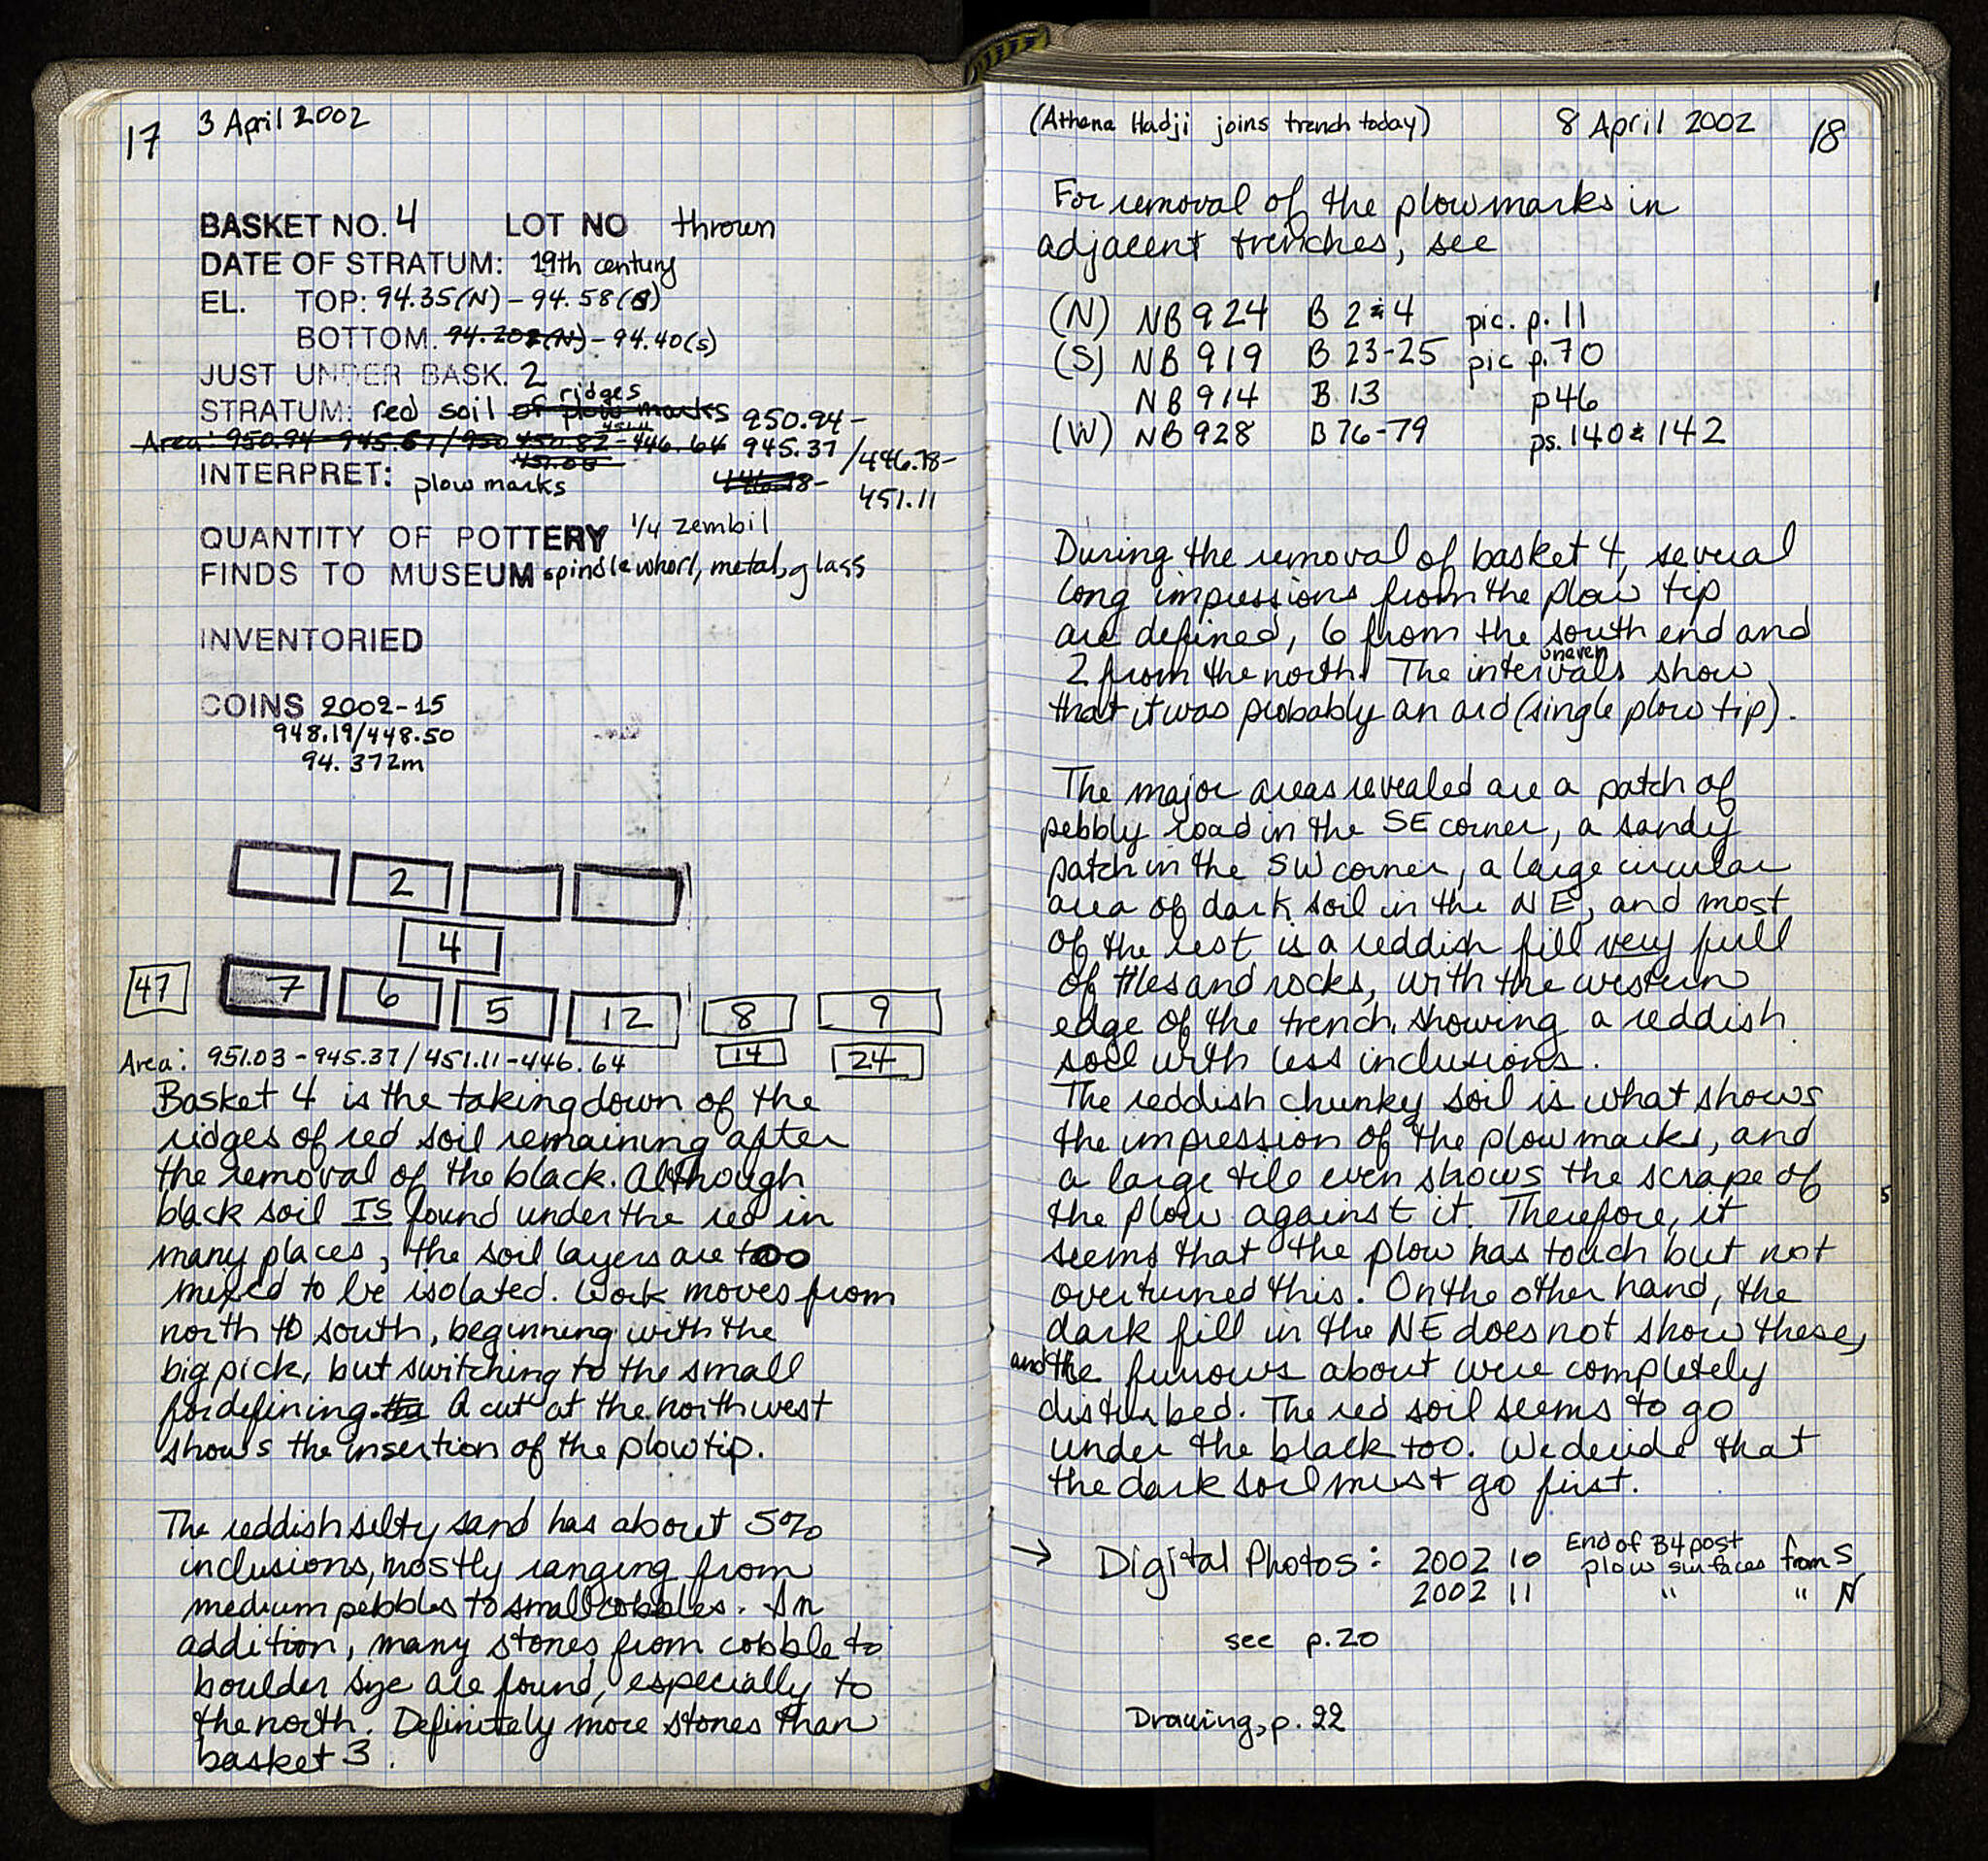 17 3 April 2002
BASKET NO. 4 LOT NO thrown
DATE OF STRATUM: 19th century
EL. TOP: 94.35(N) - 94.58(S)
BOTTOM. 94.202(N) - 94.40(s)
JUST UNDER BASK. 2
ridges
STRATUM: red soil of plow marks 950.94-
Area: 950.94-945.61/950 450.82-446.64 945.37 /446.78-
INTERPRET: plow marks 451.11
QUANTITY OF POTTERY 1/4 zembil
FINDS TO MUSEUM spindle whorl, metal, glass
INVENTORIED
COINS 2002-15
948.19/448.50
94.372m
2
4
47 7 6 5 12 8 9
14 24
Area: 951.03-945.37/451.11-446.64
Basket 4 is the taking down of the
ridges of red soil remaining after
the removal of the black. Although
black soil IS found under the red in
many places, the soil layers are too
mixed to be isolated. Work moves from
north to south, beginning with the
big pick, but switching to the small
for defining. the A cut at the northwest
shows the insertion of the plow tip.
The reddish silty sand has about 5%
inclusions, mostly ranging from
medium pebbles to small cobbles. In
addition, many stones from cobble to
boulder size are found, especially to
the north. Definitely more stones than
basket 3.
(Athena Hadji joins trench today) 8 April 2002 18
For removal of the plowmarks in
adjacent trenches, see
(N) NB 924 B 2 & 4 pic. p. 11
(S) NB 919 B 23-25 pic p. 70
NB 914 B 13 p46
(W) NB 928 B 76-79 ps. 140 & 142
During the removal of basket 4, several
long impressions from the plow tip
are defined, 6 from the south end and
uneven
2 from the north. The intervals show
that it was probably an ard (single plow tip).
The major areas revealed are a patch of
pebbly road in the SE corner, a sandy
patch in the SW corner, a large circular
area of dark soil in the NE, and most
of the rest is a reddish fill very full
of tiles and rocks, with the western
edge of the trench showing a reddish
soil with less inclusions.
The reddish chunky soil is what shows
the impression of the plow marks, and
a large tile even shows the scrape of
the plow against it. Therefore, it
seems that the plow has touch but not
overturned this. On the other hand, the
dark fill in the NE does not show these,
and the furrows about were completely
disturbed. The red soil seems to go
under the black too. We decide that
the dark soil must go first.
→ Digital Photos: 2002 10 End of B4 post plow surfaces from S
2002 11 " " N
see p. 20
Drawing, p. 22